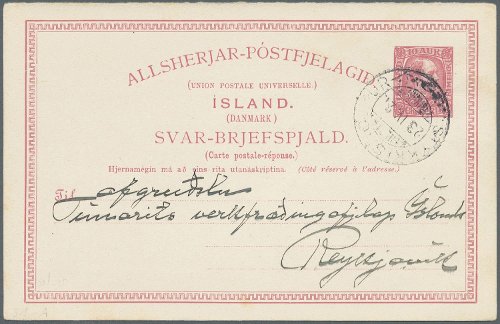 10 AUR
ALLSHERJAR-PÓSTFJELAGIÐ
(UNION POSTALE UNIVERSELLE.)
ÍSLAND.
(DANMARK)
SVAR-BRJEFSPJALD.
(Carte postale-réponse.)
Hjernamegin má að eins rita utanáskriptina. (Côté réservé à l'adresse.)
Til afgreiðslu
Tímarits verkfræðingafjelags Íslands
Reykjavík